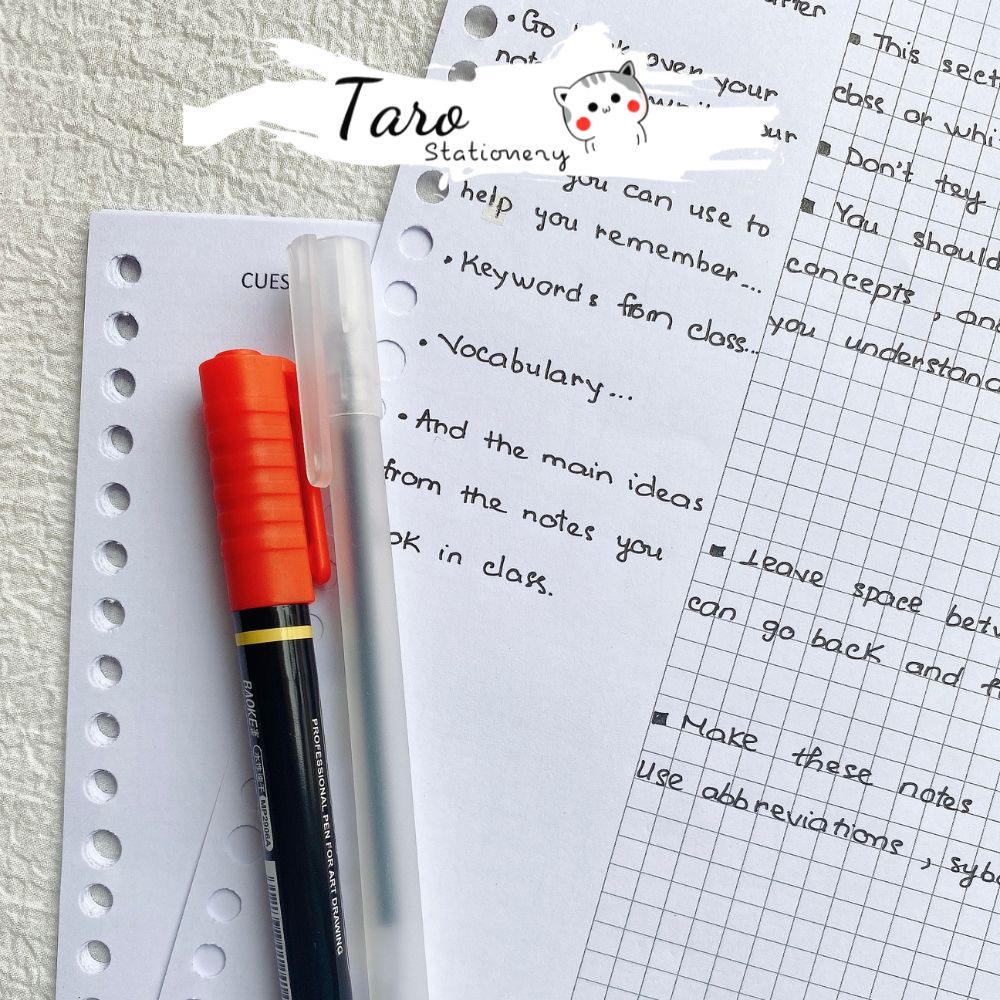 Taro
Stationery
• Go over your
you can use to
help you remember...
• Keywords from class...
• Vocabulary...
• And the main ideas
from the notes you
in class.
CUES
▪ This
class or
▪ Don't tey
▪ You should
concepts,
you understand
▪ Leave space
can go back and
▪ Make these notes
use abbreviations,
BAOKE
MP2906A
PROFESSIONAL PEN FOR ART DRAWING